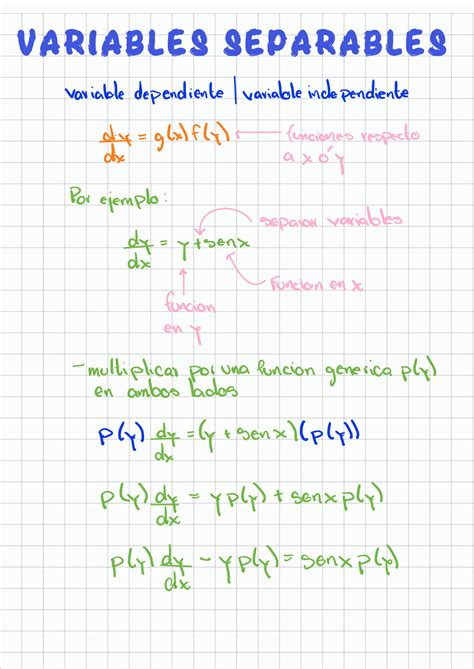 VARIABLES SEPARABLES
variable dependiente | variable independiente
dy/dx = g(x) f(y) ← funciones respecto
a x ó y
Por ejemplo:
separar variables
dy/dx = y + senx
Funcion en x
funcion
en y
- multiplicar por una funcion generica p(y)
en ambos lados
p(y) dy/dx = (y + senx)(p(y))
p(y) dy/dx = y p(y) + senx p(y)
p(y) dy/dx - y p(y) = senx p(y)